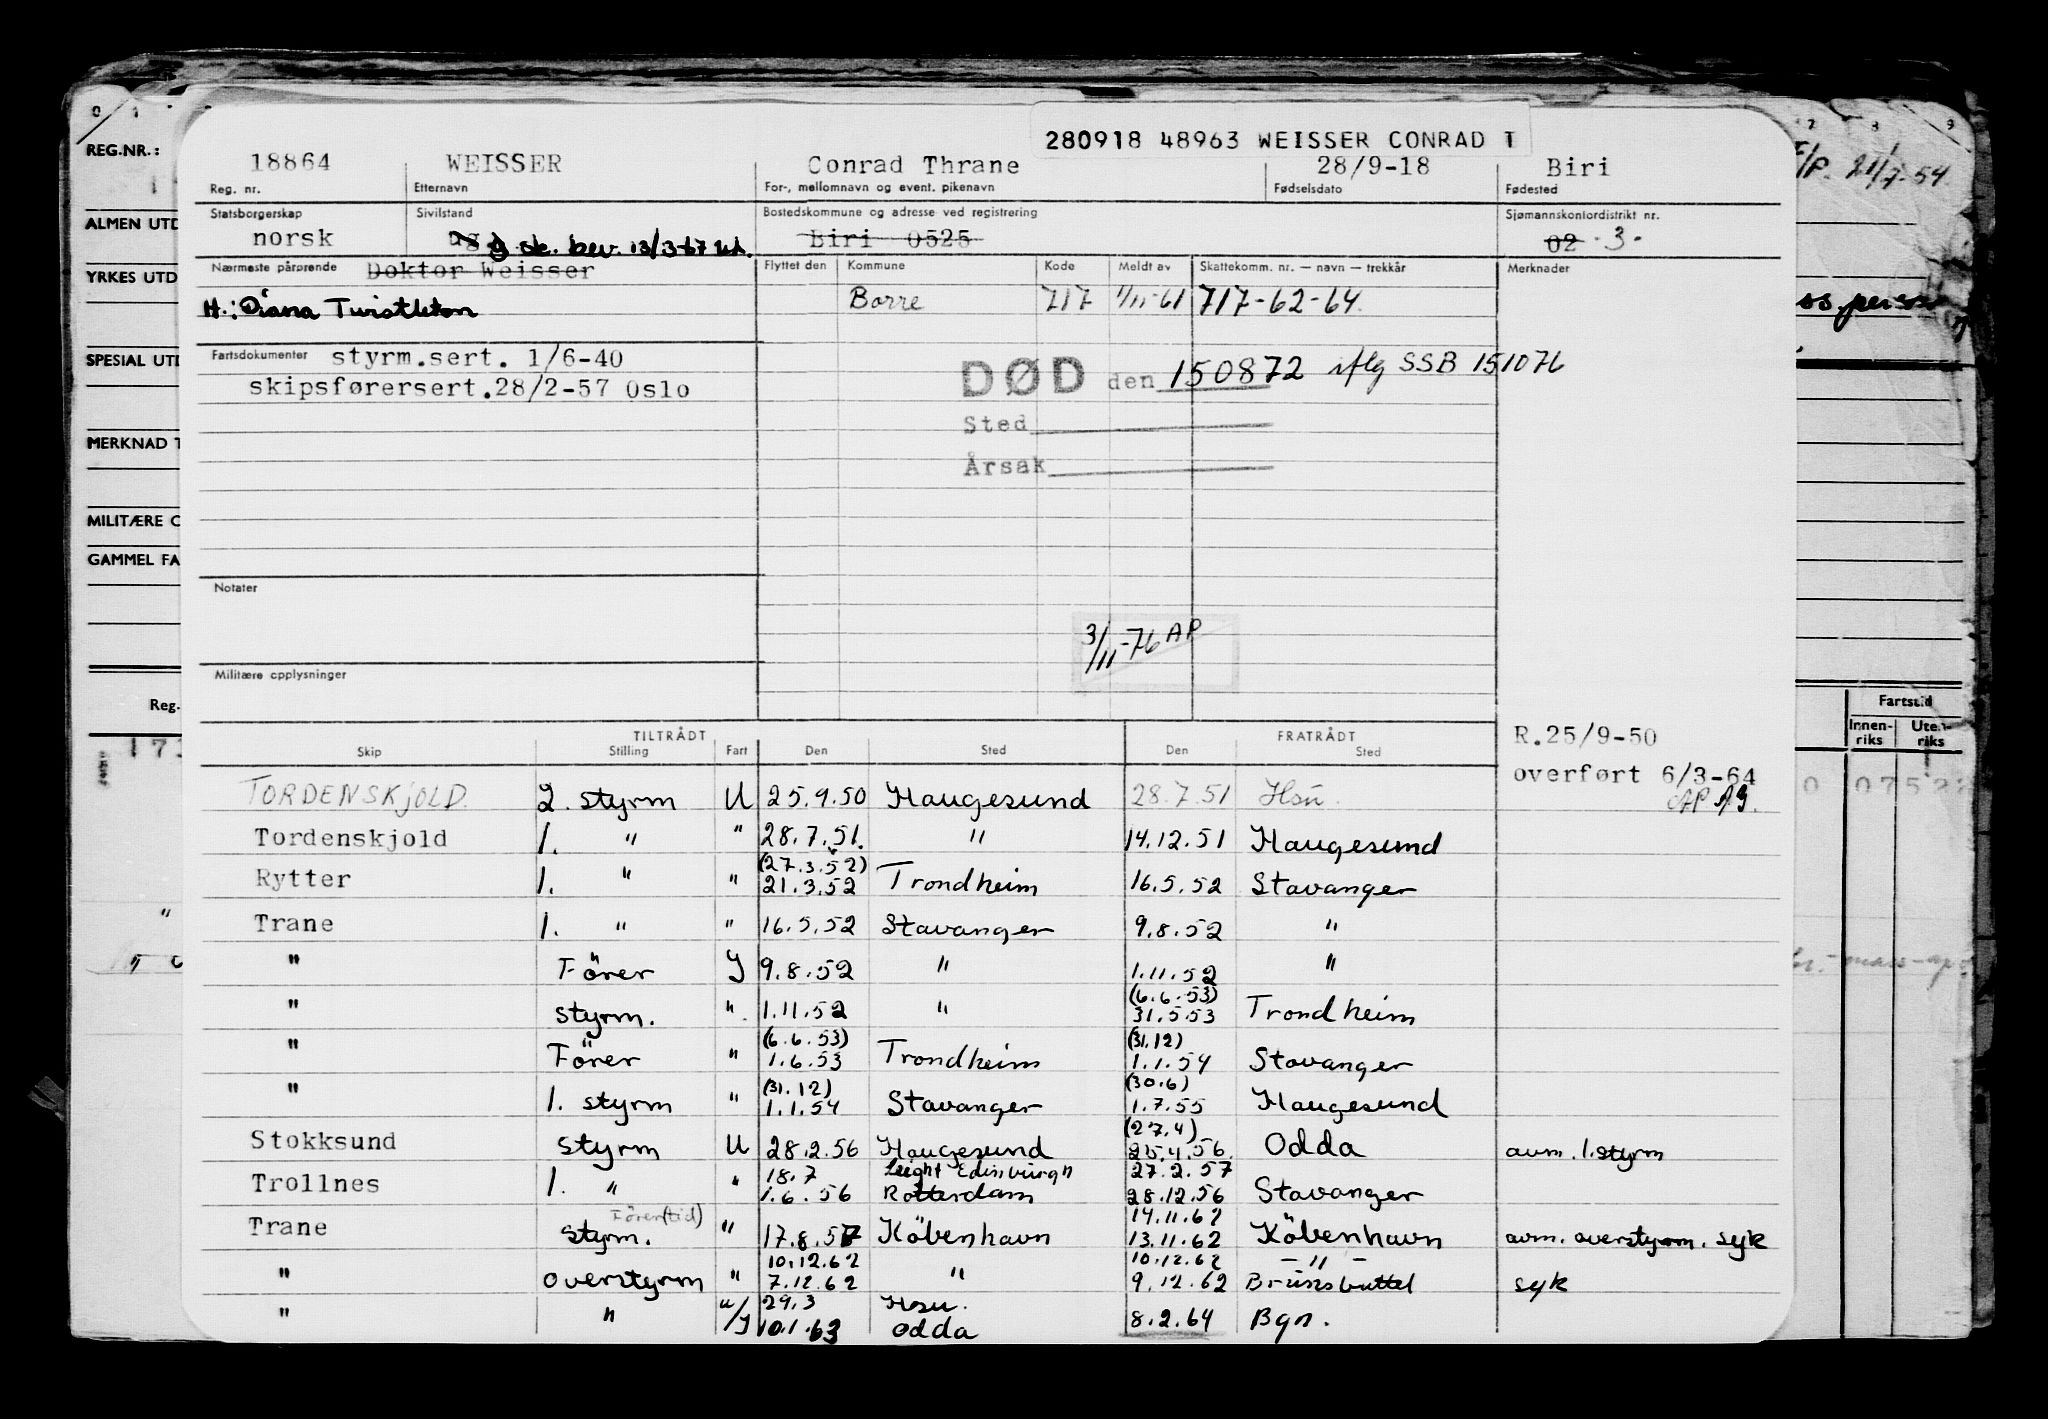 280918 48963 WEISSER CONRAD T
18864 WEISSER Conrad Thrane 28/9-18 Biri
Reg. nr. Etternavn For-, mellomnavn og event. pikenavn Fødselsdato Fødested
Statsborgerskap Sivilstand Bostedskommune og adresse ved registrering Sjømannskontordistrikt nr.
norsk ug g sk. bev. 13/3-67 Biri 0525 02 3.
Nærmeste pårørende Doktor Weisser Flyttet den Kommune Kode Meldt av Skattekomm. nr. — navn — trekkår Merknader
H.: Diana Twistleton Borre 717 1/11-61 717-62-64.
Fartsdokumenter styrm.sert. 1/6-40
skipsførersert.28/2-57 Oslo
DØD den 150872 iflg SSB 151076
Sted
Årsak
Notater
3/11-76 AP
Militære opplysninger
TILTRÅDT FRATRÅDT
Skip Stilling Fart Den Sted Den Sted
R.25/9-50
overført 6/3-64
AP
TORDENSKJOLD 2. styrm U 25.9.50 Haugesund 28.7.51 Hsu.
Tordenskjold 1. " " 28.7.51. " 14.12.51 Haugesund
(27.3.52)
Rytter 1. " " 21.3.52 Trondheim 16.5.52 Stavanger
Trane 1. " " 16.5.52 Stavanger 9.8.52 "
" Förer J 9.8.52 " 1.11.52 "
(6.6.53)
" styrm. " 1.11.52 " 31.5.53 Trondheim
(6.6.53) (31.12)
" Förer " 1.6.53 Trondheim 1.1.54 Stavanger
(31.12) (30.6)
" 1. styrm " 1.1.54 Stavanger 1.7.55 Haugesund
(27.4)
Stokksund styrm U 28.2.56 Haugesund 25.4.56. Odda avm. 1. styrm
18.7 Leight Edinburgh 27.2.57
Trollnes 1. " " 1.6.56 Rotterdam 28.12.56 Stavanger
Förer(tid) 14.11.62
Trane styrm. " 17.8.57 Köbenhavn 13.11.62 Köbenhavn avm. overstyrm. syk
10.12.62 10.12.62 — " —
" overstyrm " 7.12.62 " 9.12.62 Brunsbuttel syk
29.3 Hsu.
" " u/J 10.1.63 Odda 8.2.64 Bgn.
REG.NR.:
ALMEN UTD
YRKES UTD
SPESIAL UTD
MERKNAD T
MILITÆRE O
GAMMEL FA
Reg.
F/P. 21/7-54
Fartstid
Innen-riks Uten-riks